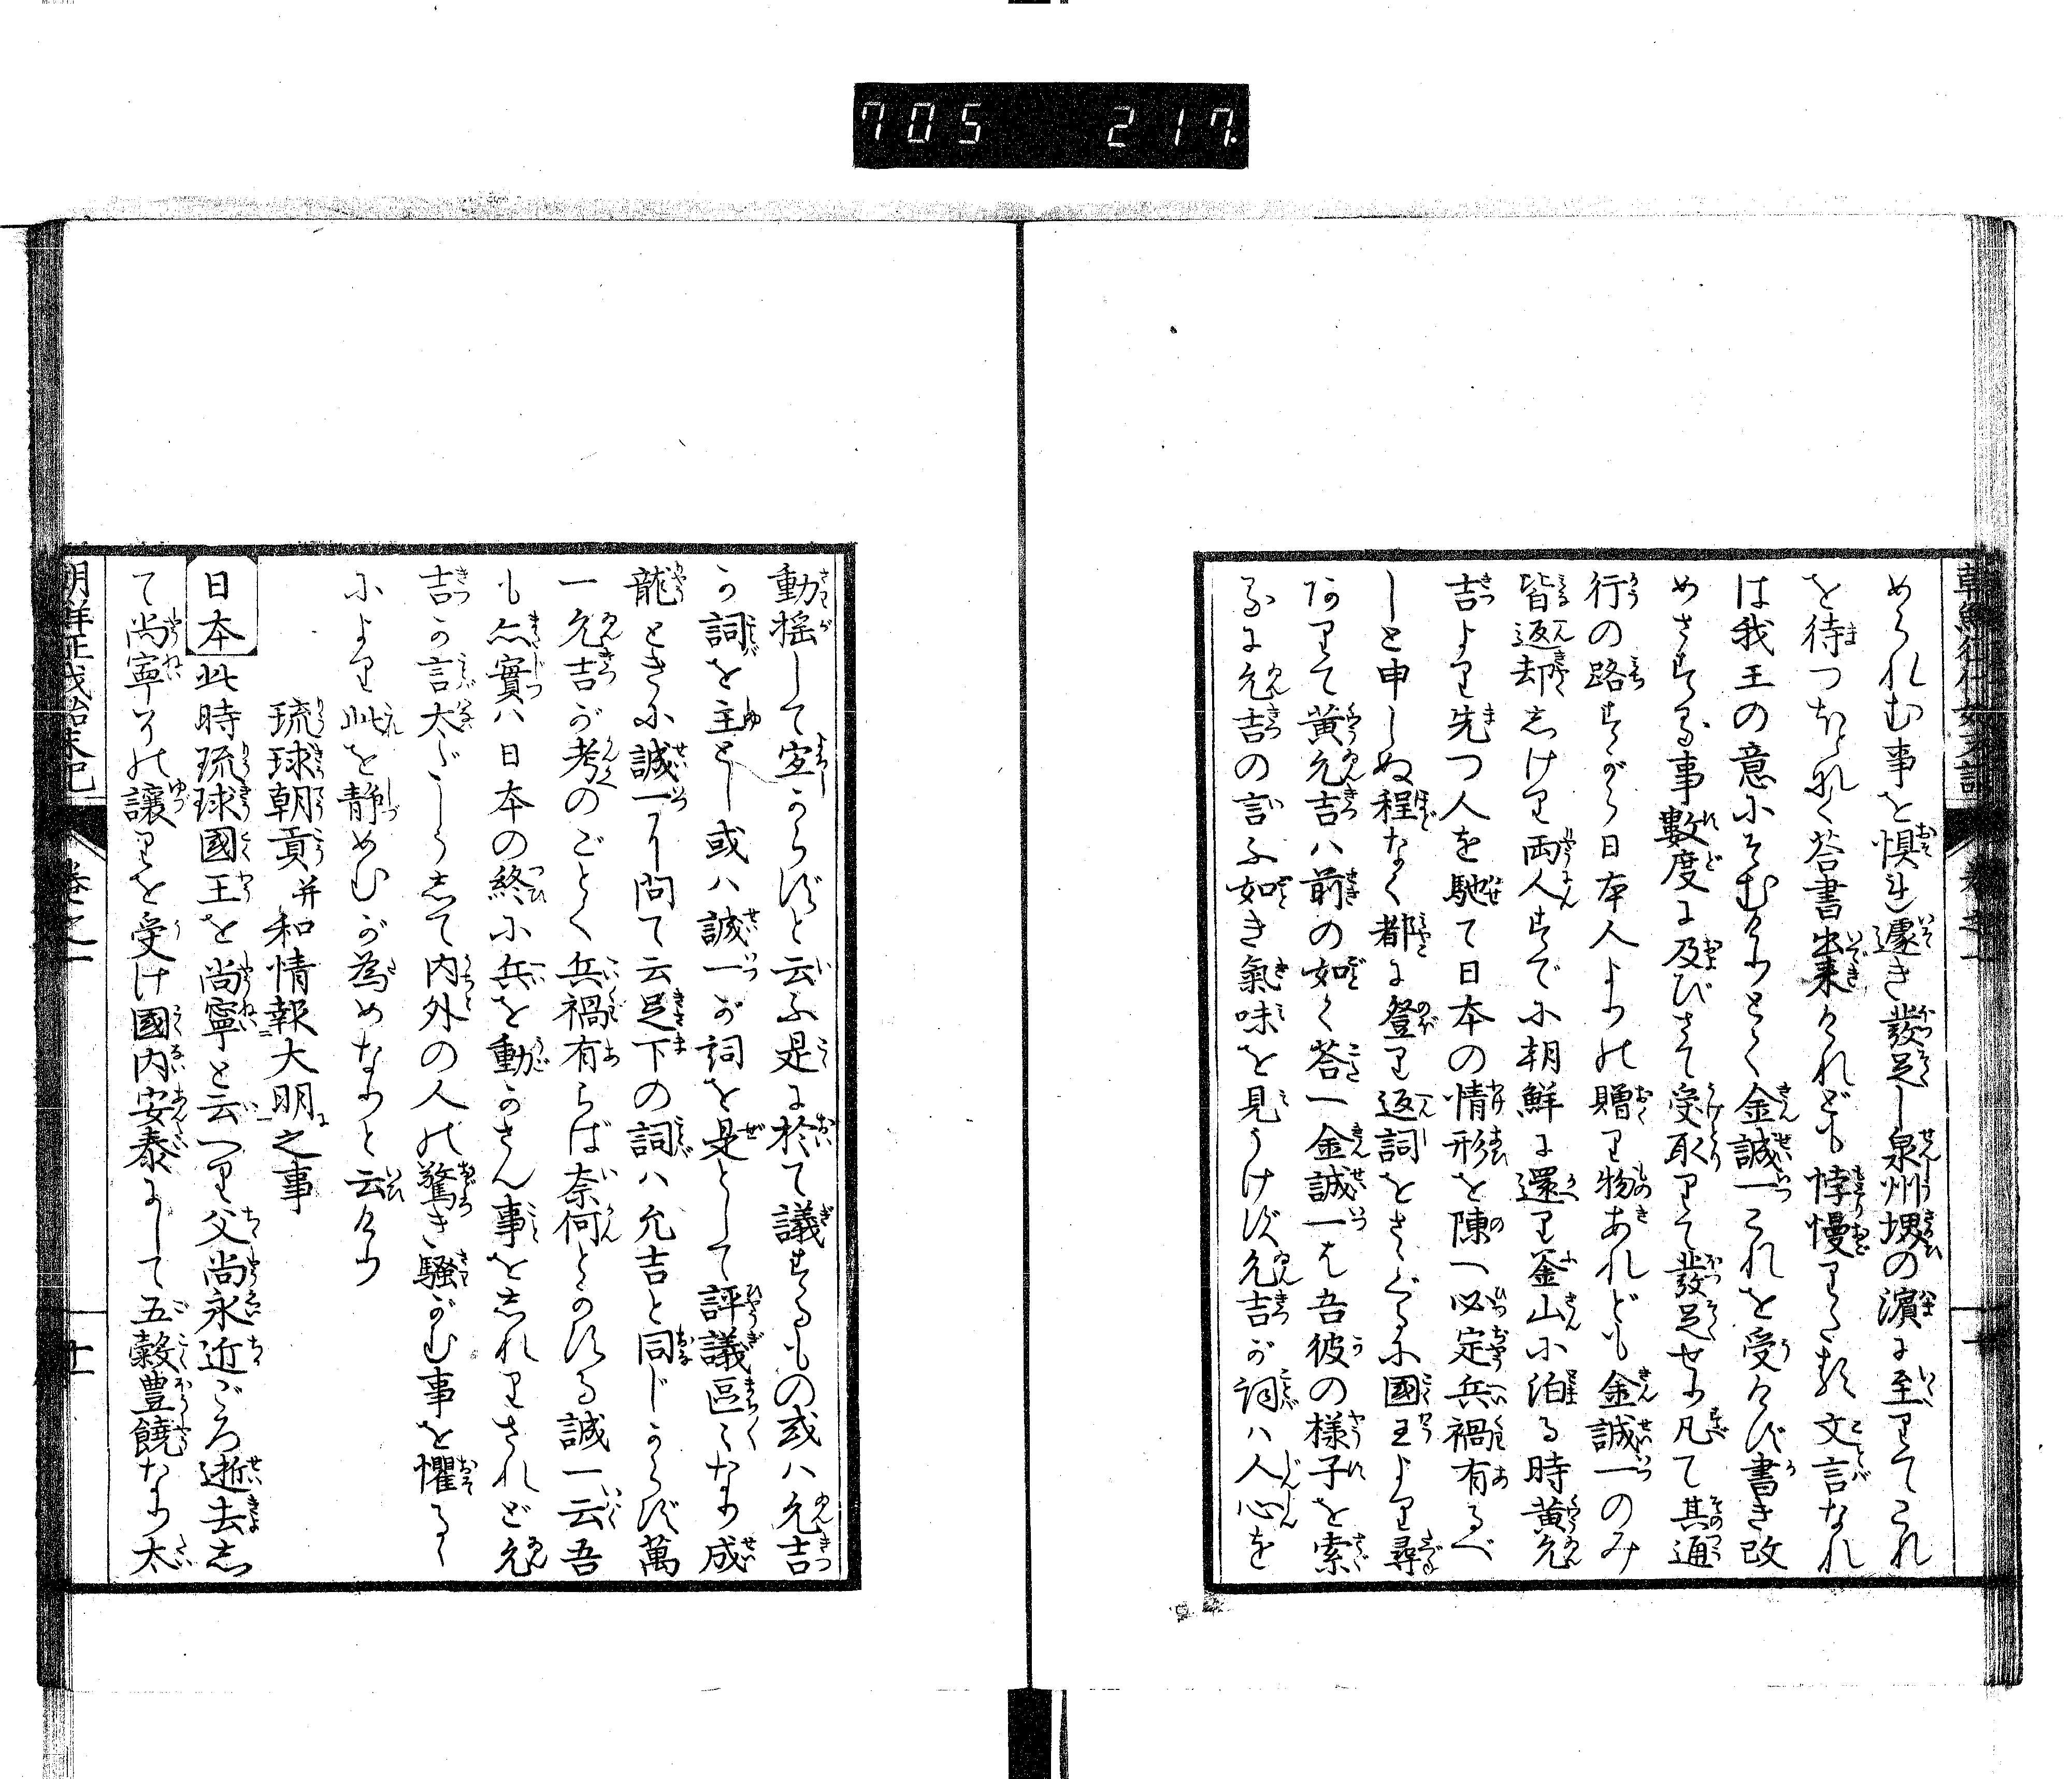 705 217
められむ事を惧れ遽き發足し泉州堺の濱に至りてこれ
を待つほどなく荅書出来けれども悖慢りたる文言なれ
は我王の意にそむけりとて金誠一これを受けず書き改
めさする事數度に及びさて受取りて發足せり凡て其通
行の路すがら日本人よりの贈り物あれども金誠一のみ
皆返却しけり両人すでに朝鮮に還り釜山に泊る時黄允
吉より先つ人を馳て日本の情形を陳へ必定兵禍有るべ
しと申しぬ程なく都に登り返詞をさゝぐるに國王より尋
ありて黄允吉ハ前の如く荅へ金誠一は吾彼の様子を索
るに允吉の言ふ如き氣味を見うけず允吉が詞ハ人心を
動揺して宜からずと云ふ是に於て議するもの或ハ允吉
か詞を主とし或ハ誠一が詞を是として評議區々なり成
龍ときに誠一に問て云足下の詞ハ允吉と同じからず萬
一允吉が考のごとく兵禍有らば奈何とかする誠一云吾
も亦實ハ日本の終に兵を動かさん事をしれりされど允
吉か言太だしうして内外の人の驚き騒がむ事を懼るゝ
により此を静めむが為めなりと云けり
琉球朝貢并和情報大明之事
日本 此時琉球國王を尚寧と云へり父尚永近ごろ逝去し
て尚寧その讓りを受け國内安泰にして五穀豊饒なり太
朝鮮征伐始末記 巻之一 十一